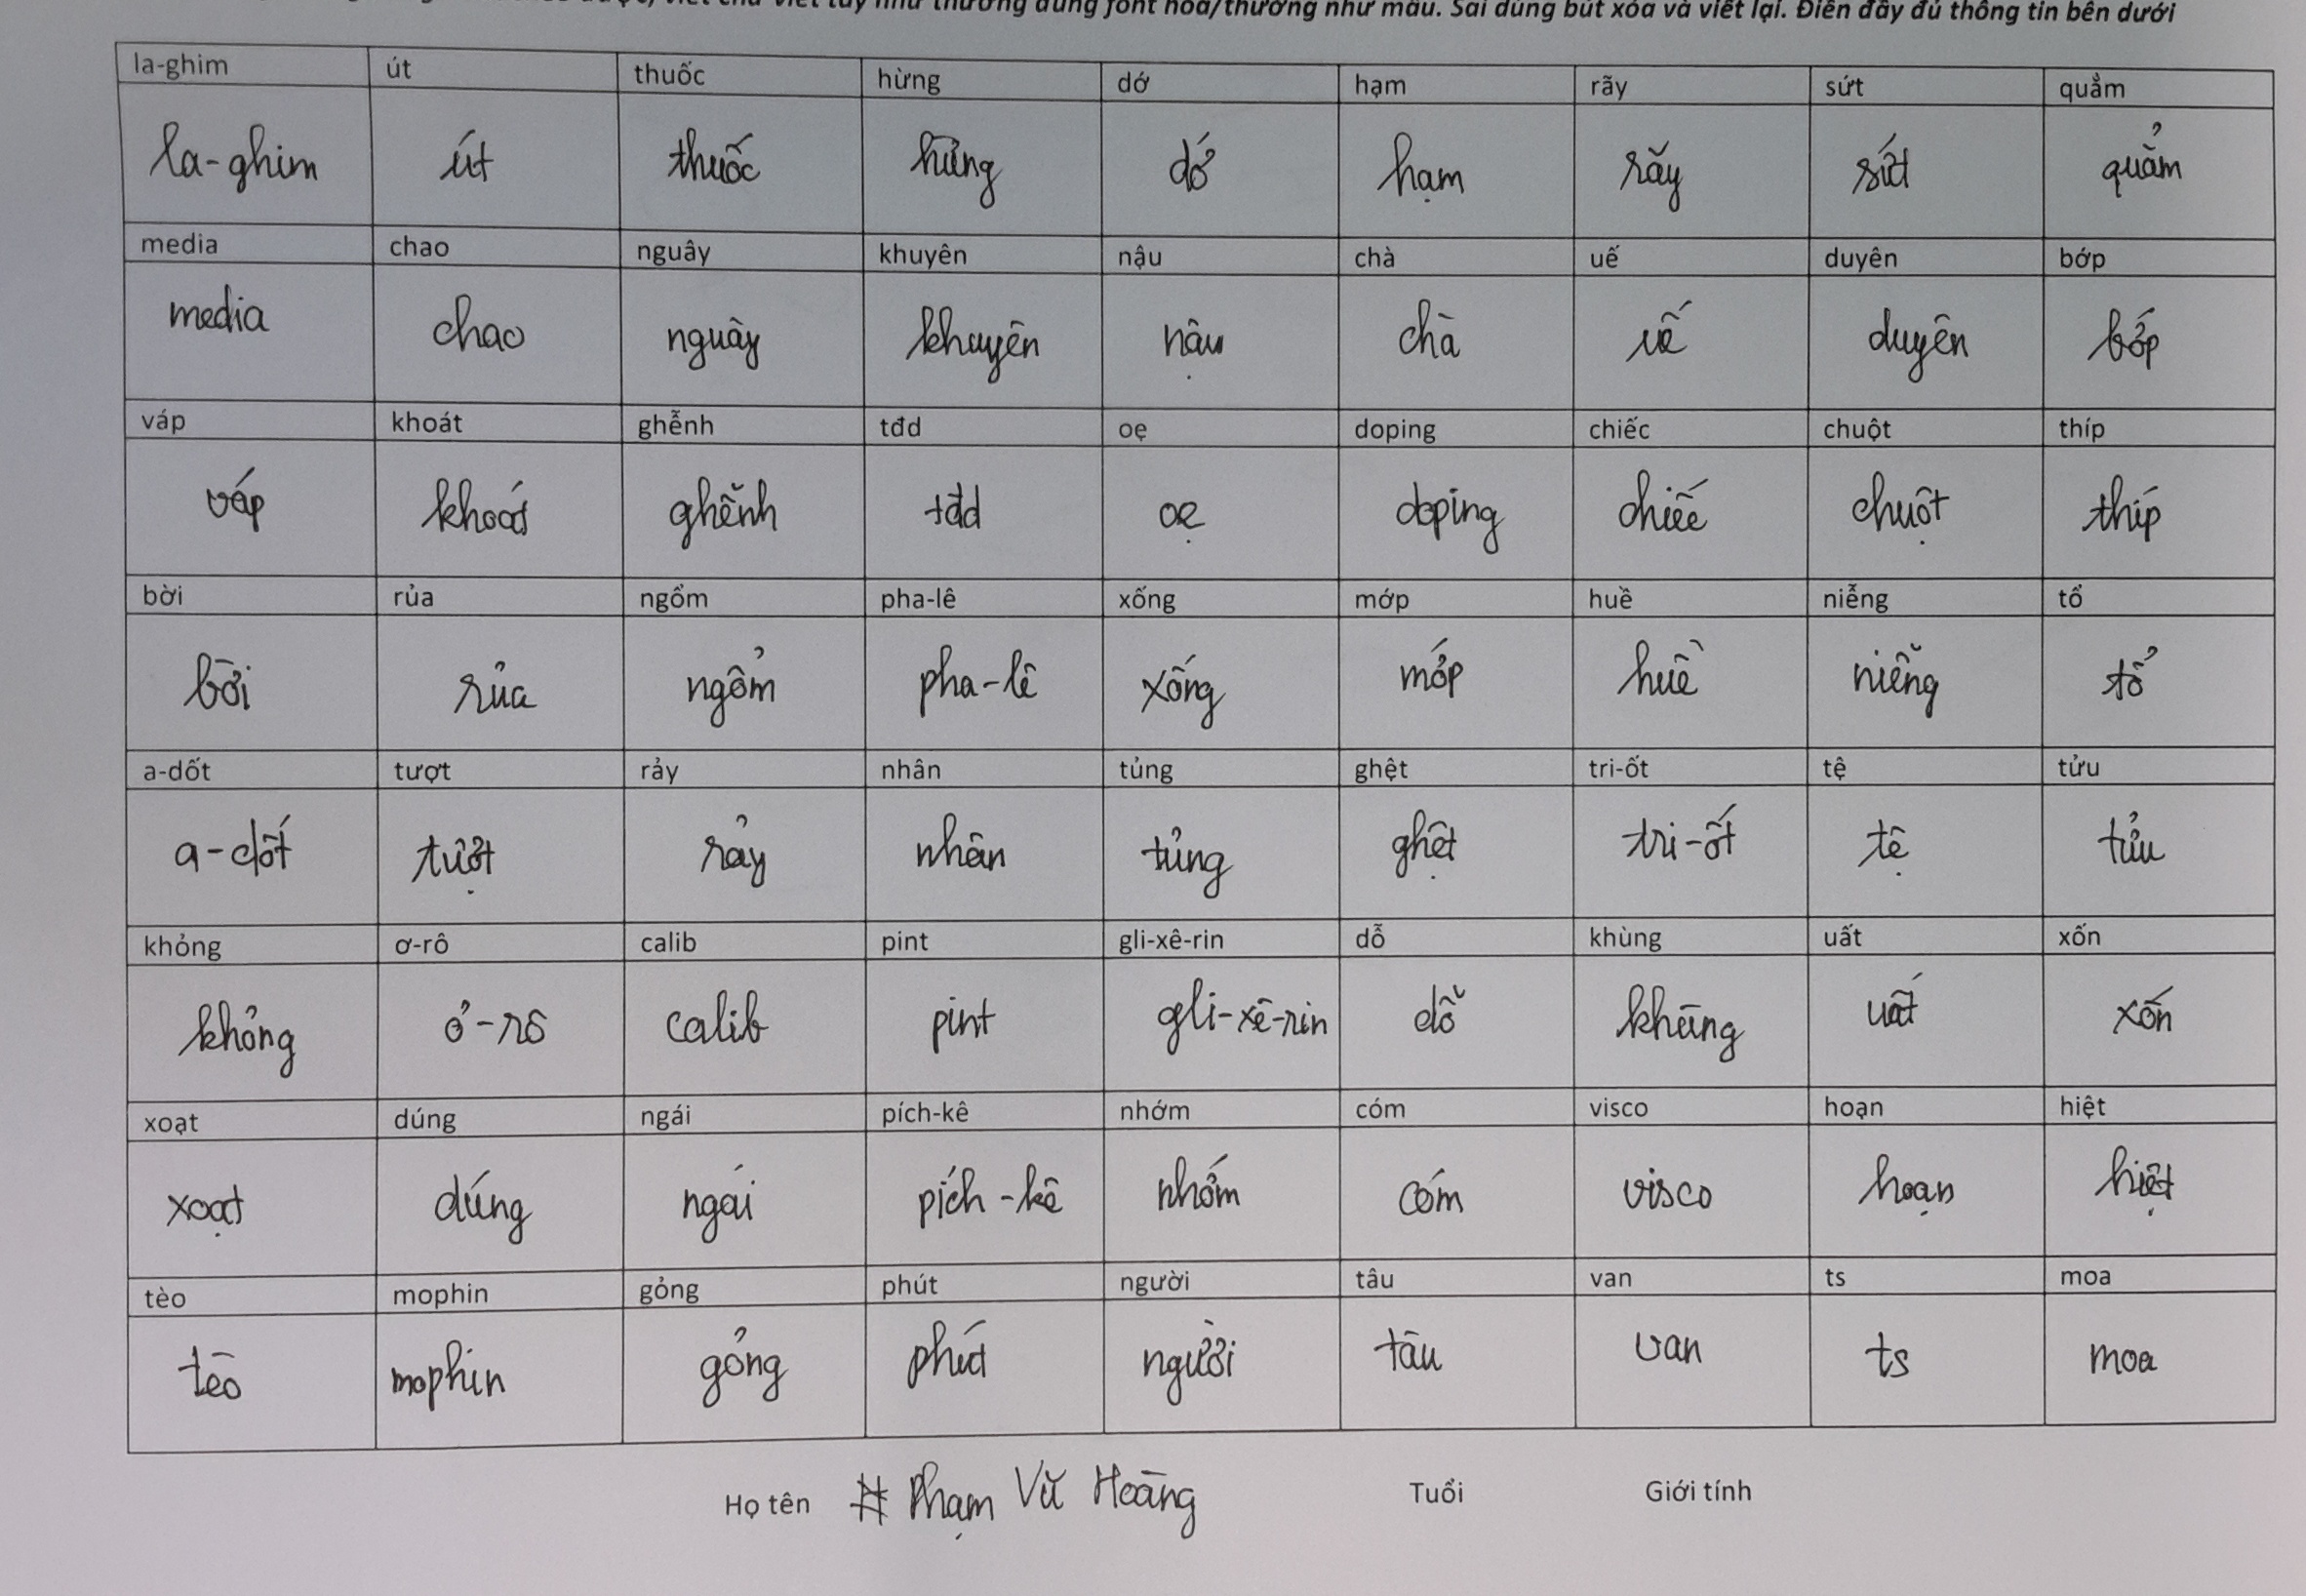 viết chữ viết tay như thường dùng font hoa/thường như mẫu. Sai dùng bút xóa và viết lại. Điền đầy đủ thông tin bên dưới
la-ghim út thuốc hừng dớ hạm rãy sứt quằm
la-ghim út thuốc hừng dớ hạm rãy sứt quẳm
media chao nguây khuyên nậu chà uế duyên bớp
media chao nguầy khuyên nậu chà uế duyên bớp
váp khoát ghễnh tđd oẹ doping chiếc chuột thíp
váp khoát ghễnh tđd oẹ doping chiếc chuột thíp
bời rủa ngồm pha-lê xống mớp huề niễng tổ
bời rủa ngổm pha-lê xống mớp huề niễng tổ
a-dốt tượt rảy nhân tủng ghệt tri-ốt tệ tửu
a-dốt tượt rảy nhân tủng ghệt tri-ốt tệ tửu
khỏng ơ-rô calib pint gli-xê-rin dỗ khùng uất xốn
khỏng ơ-rô calib pint gli-xê-rin dỗ khùng uất xốn
xoạt dúng ngái pích-kê nhớm cóm visco hoạn hiệt
xoạt dúng ngái pích-kê nhớm cóm visco hoạn hiệt
tèo mophin gỏng phút người tâu van ts moa
tèo mophin gỏng phút người tâu van ts moa
Họ tên # Phạm Vũ Hoàng Tuổi Giới tính